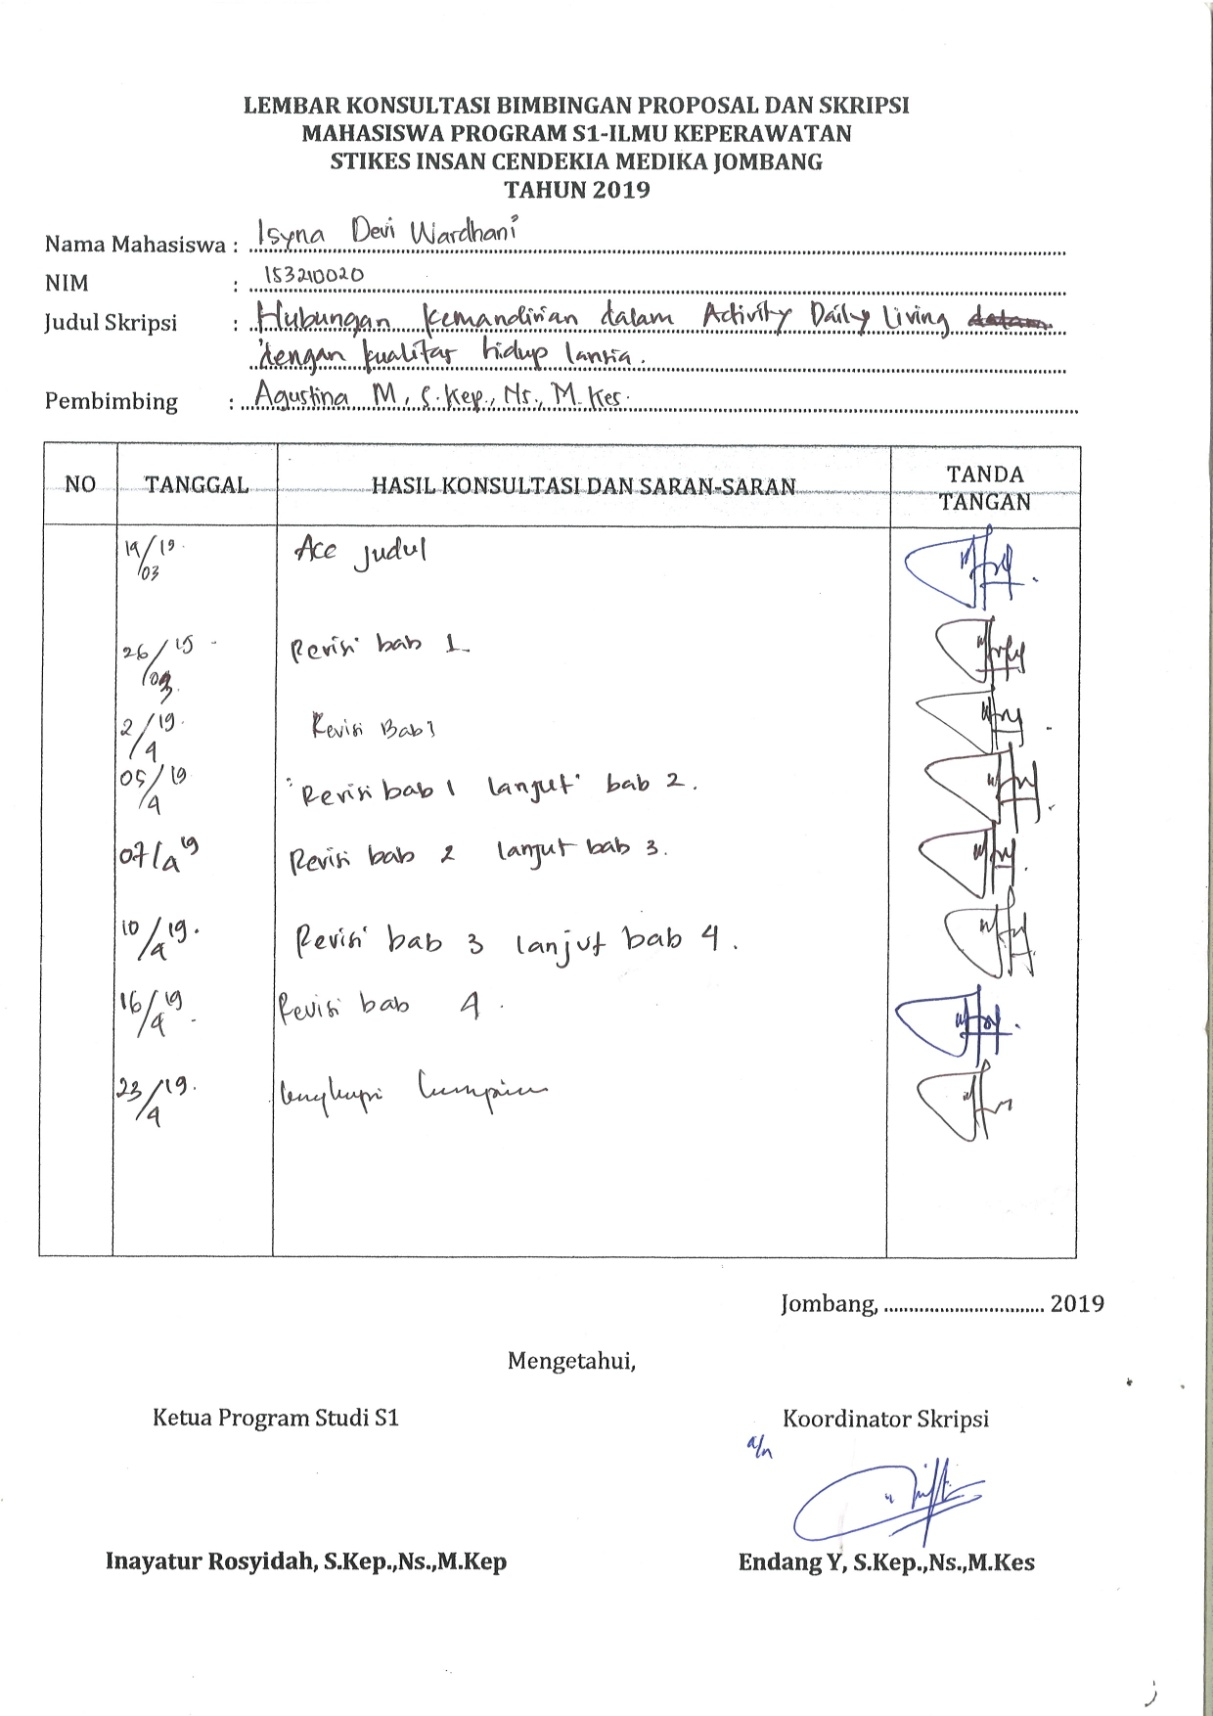 LEMBAR KONSULTASI BIMBINGAN PROPOSAL DAN SKRIPSI
MAHASISWA PROGRAM S1-ILMU KEPERAWATAN
STIKES INSAN CENDEKIA MEDIKA JOMBANG
TAHUN 2019
Nama Mahasiswa : Isyna Devi Wardhani
NIM : 153210020
Judul Skripsi : Hubungan Kemandirian dalam Activity Daily Living
dengan kualitas hidup lansia.
Pembimbing : Agustina M, S.Kep., Ns., M.Kes.
NO TANGGAL HASIL KONSULTASI DAN SARAN-SARAN TANDA
TANGAN
19/03 19. Acc judul
26/03 19 Revisi bab 1
2/4 19. Revisi Bab 1
05/4 19 Revisi bab 1 lanjut bab 2.
07/4 19 Revisi bab 2 lanjut bab 3.
10/4 19. Revisi bab 3 lanjut bab 4.
16/4 19. Revisi bab 4.
23/4 19. lengkapi
Jombang, .............................. 2019
Mengetahui,
Ketua Program Studi S1 Koordinator Skripsi
a/n
Inayatur Rosyidah, S.Kep.,Ns.,M.Kep Endang Y, S.Kep.,Ns.,M.Kes